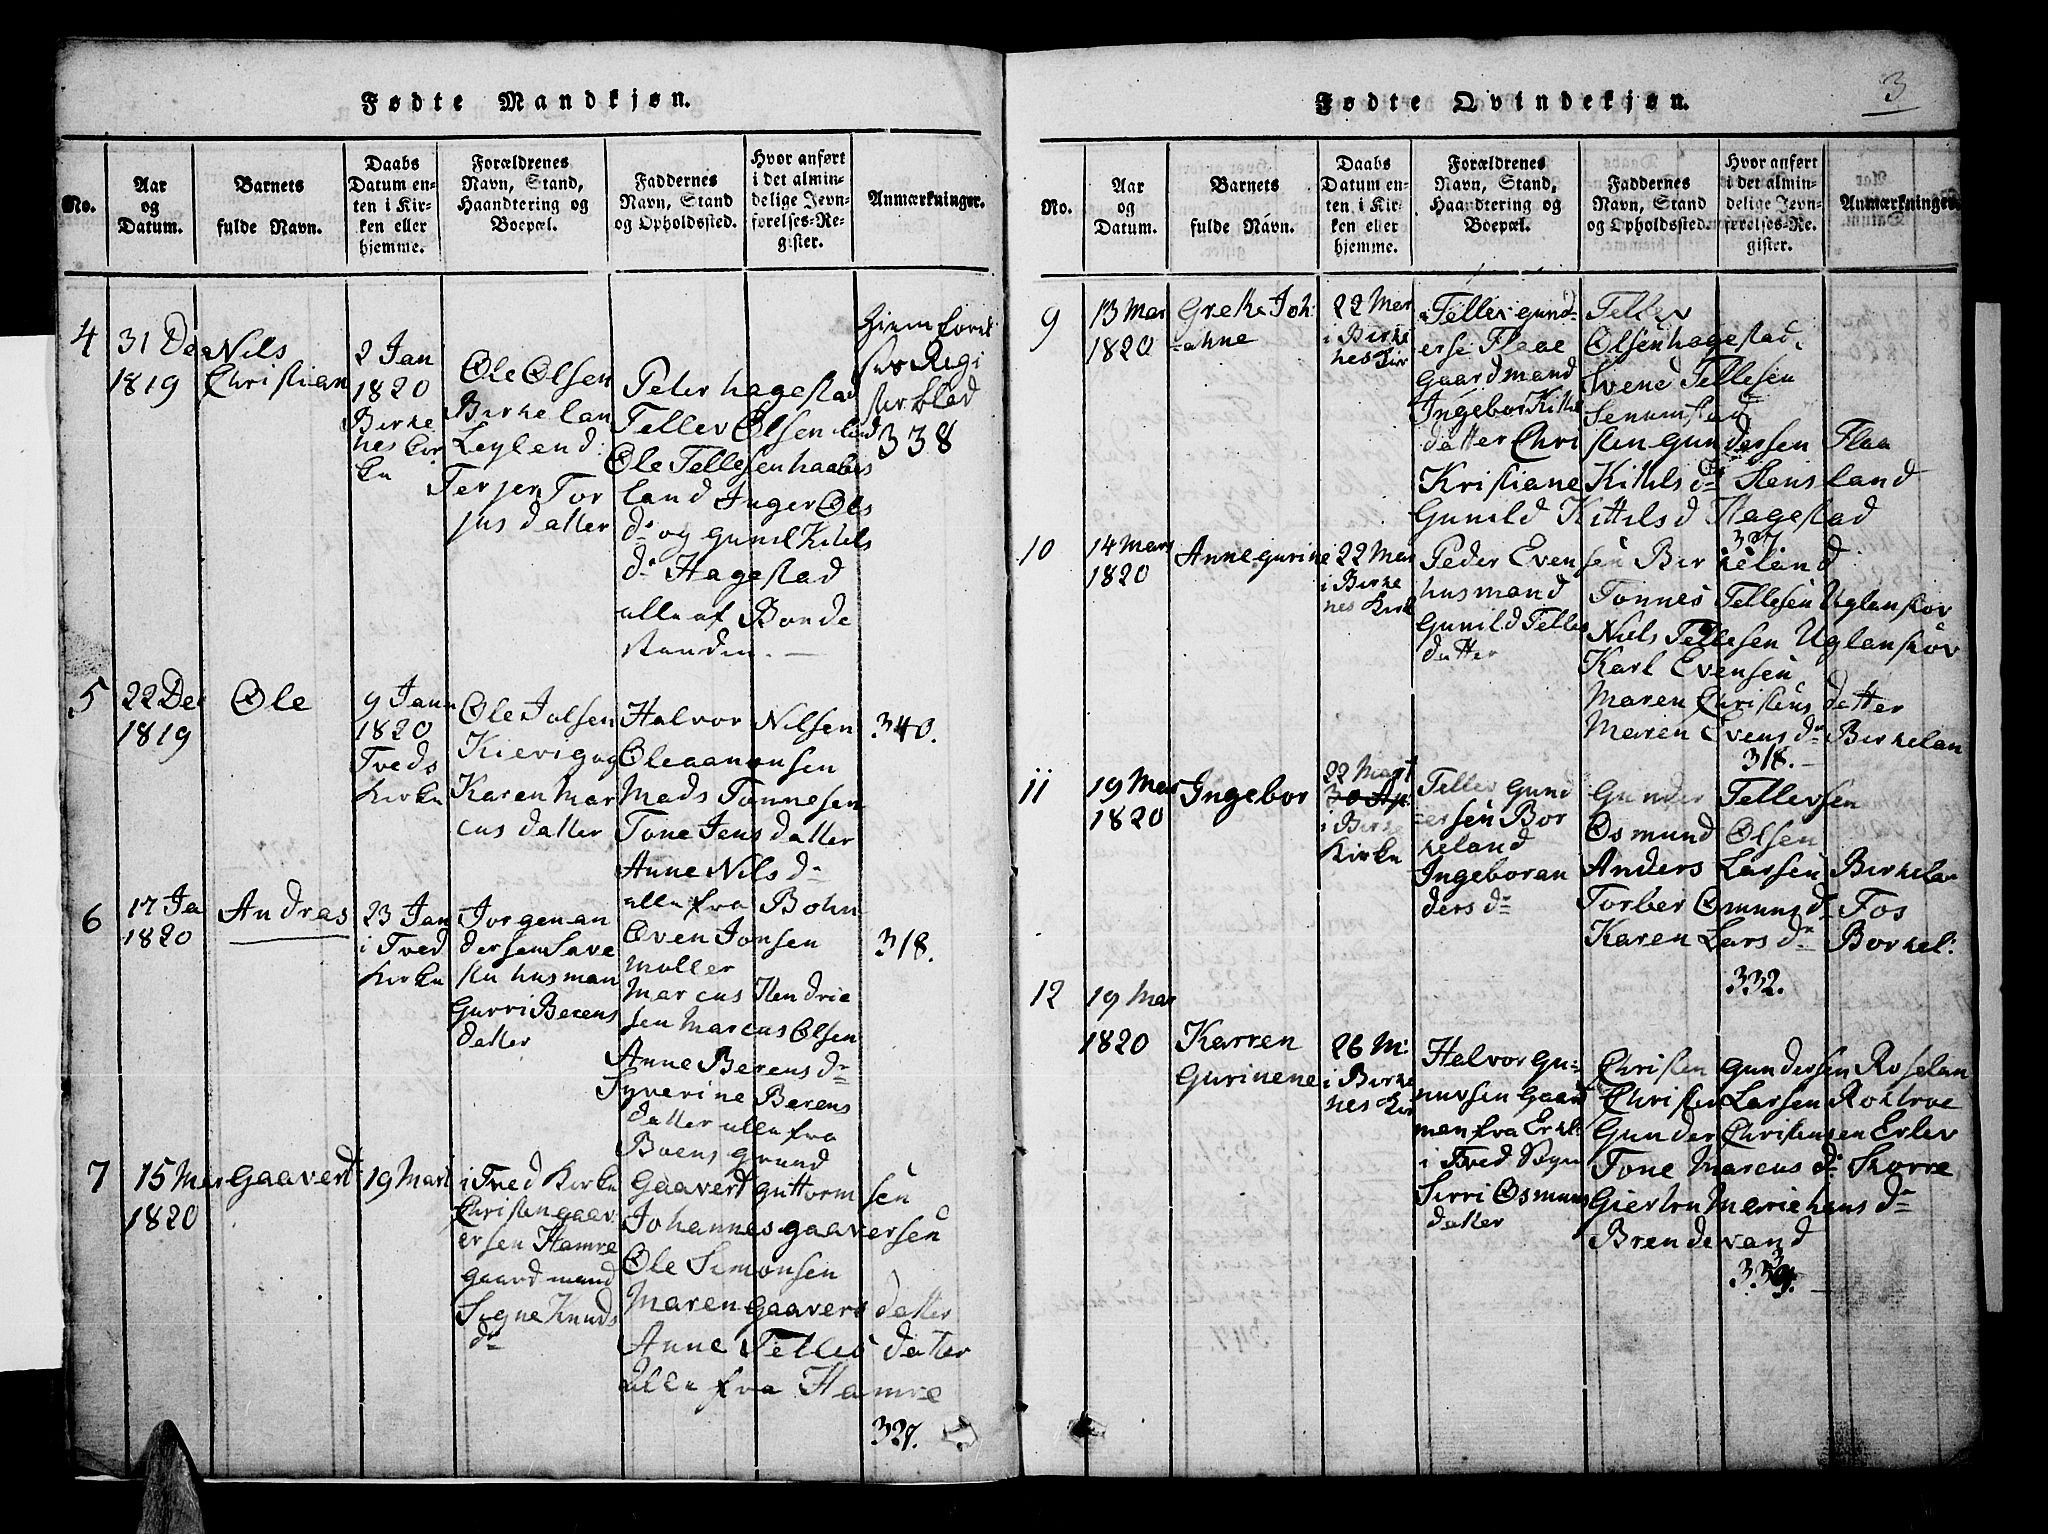 Fødte Mandkjøn.
No.
Aar
og
Datum.
Barnets
fulde Navn.
Daabs
Datum en-
ten i Kir-
ken eller
hjemme.
Forældrenes
Navn, Stand,
Haandtering og
Boepæl.
Faddernes
Navn, Stand
og Opholdssted.
Hvor anført
i det almin-
delige Jevn-
førelses-Re-
gister.
Anmærkninger.
4
31 De
1819
Nils
Christian
2 Jan
1820
Birke
nes Kir
ke
Ole Olsen
Birkelan
Leylend
Terjer Tor
jus datter
Peter hagestad
Tellev Olsen
Ole Tellesen haabes
land Inger Ols
dr og Gunil Kitils
dr Hagestad
alle af Bonde
standen. —
Regi
ster blad
338
5
22 Des
1819
Ole
9 Jann
1820
Tveds
Kirke
Ole Jolsen
Kievig og
Karen Mar
cus datter
Halvor Nilsen
Ole aanonsen
Mads Tonnesen
Tone Jens datter
Anne Nils dr
alle fra Bohn
340.
6
17 Ja
1820
Andras
23 Jan
i Tved
Kirke
Jorgen an
dersen Save
stu husman
Gurri Berens
datter
Oven Jonsen
moller
Marcus Hendrie
sen Marcus Olsen
Anne Berens dr
Syverine Berens
datter alle fra
Boens grund
318.
7
15 Mar
1820
Gaavert
19 Mart
i Tved Kirke
Christen gaav
ersen Hamre
gaardmand
Signe Knuds
dr
Gaavert Guttorm sen
Johannes gaaversen
Ole Simonsen
Maren Gaavers datter
Anne Telles datter
alle fra Hamre
327.
3
Fødte Qvindekjøn.
No.
Aar
og
Datum.
Barnets
fulde Navn.
Daabs
Datum en-
ten i Kir-
ken eller
hjemme.
Forældrenes
Navn, Stand,
Haandtering og
Boepæl.
Faddernes
Navn, Stand
og Opholdssted.
Hvor anført
i det almin-
delige Jevn-
førelses-Re-
gister.
Anmærkninger.
9
13 Mar
1820
Grete Joh
ahne
22 Mar
i Birke
nes Kir
Tellev gund
erse Flaae
gaardmand
Ingebor Kittil
datter
Tellev
Olsen hagestad
Svene Tellesen
Senumstad
Christen gundersen Flaa
Kristiane Kitils dr Stensland
Gunild Kittilsd Hagestad
327
10
14 Mars
1820
Anne gurine
22 Mar
i Birke
nes Kirk
Peder Evensen Birkeland
husmand
Gunild Telles
datter
Tonnes Tellesen Uglanskov
Niels Tellesen Uglanskov
Karl Evensen
Maren Christens datter
Maren Evens dr Birkelan
318. —
11
19 Mar
1820
Ingebor
22 Mart
30 Ap
i Birke
Kirke
Tellev Gund
ersen Bor
keland
Ingebor an
ders dr
Gunder Tellevsen
Osmund Olsen
Anders Larsen Birkelan
Torber Omuns dr Fos
Karen Lars dr Borkel:
332.
12
19 Mar
1820
Karren
Gurinene
26 M:
i Birke
nes Kir
Halvor Gu-
nursen Gaard
man fra Erkl:
i Tved Sogn
Sirri Osmuns
datter
Christen gundersen Roselan
Christen Larsen Roktroe
Gunder Christensen Erlev
Tone Marcus dr Skorre
Giertru Marie hans dr
Brendevand